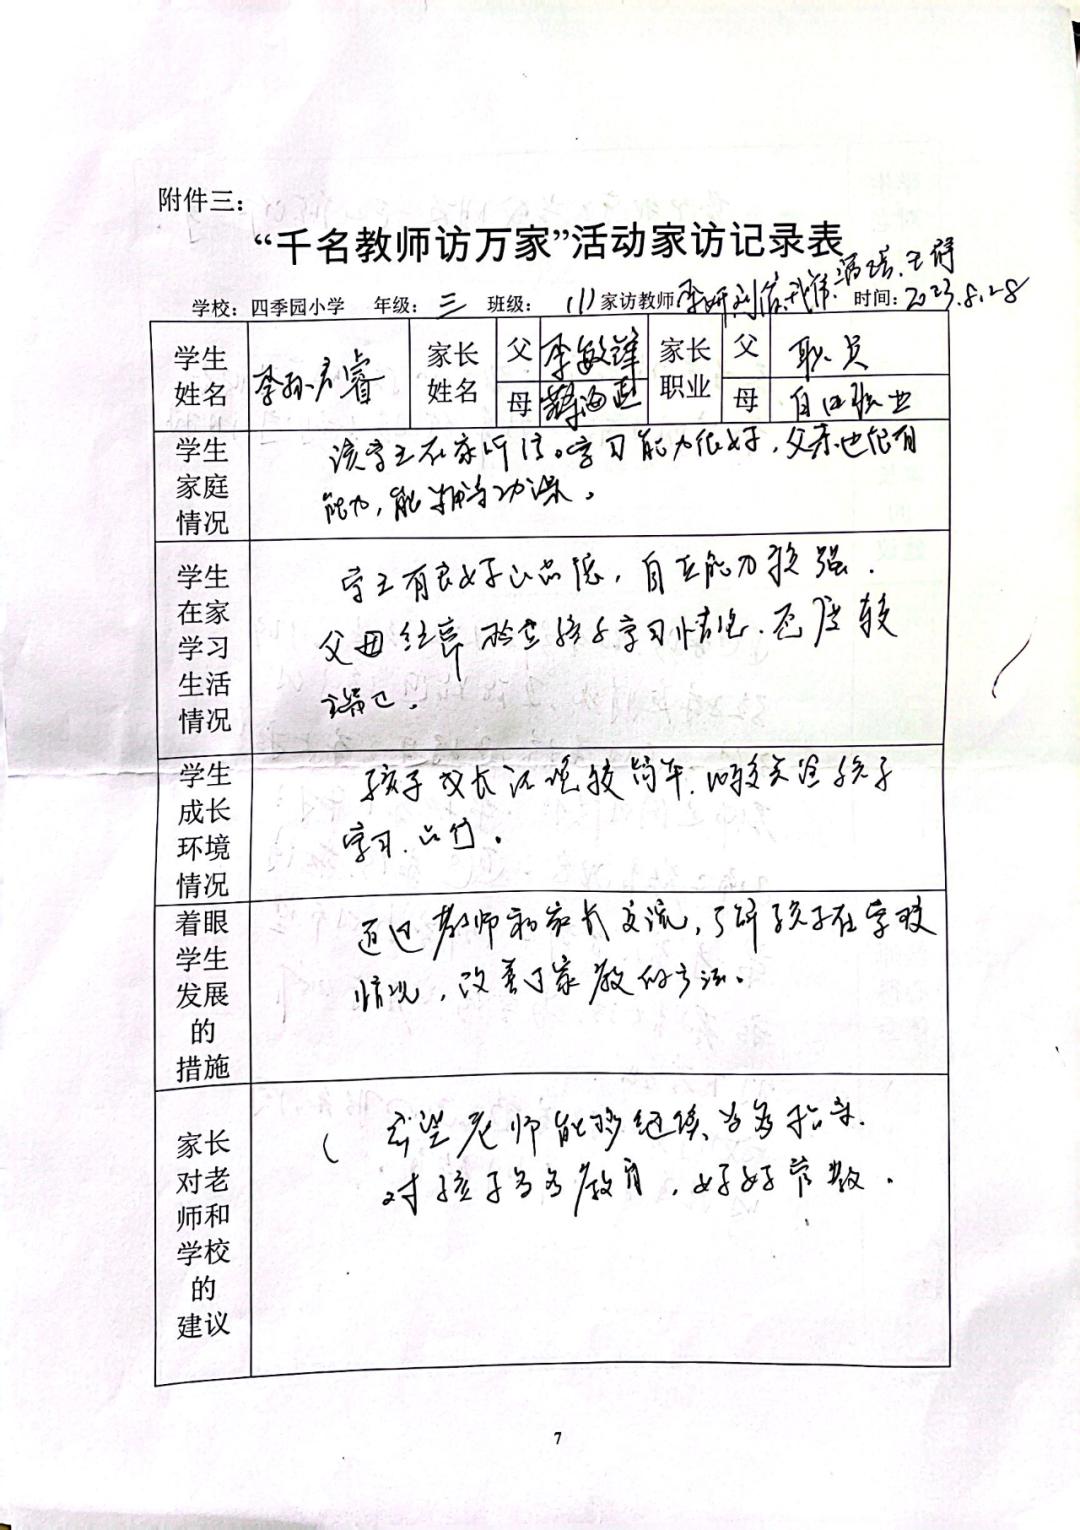 附件三：
“千名教师访万家”活动家访记录表
学校：四季园小学 年级：三 班级：(1) 家访教师 时间：2023.8.28
学生姓名 家长姓名 父 李敏锋 家长职业 父 职员
母 母 自由职业
学生家庭情况
该学生在家听话。学习能力很好，父亲也很有
能力，能辅导功课。
学生在家学习生活情况
学生有良好的品德，自立能力较强.
父母经常检查孩子学习情况.态度较
端正.
学生成长环境情况
孩子成长环境较简单.家长关注孩子
学习.品行。
着眼学生发展的措施
通过教师和家长交流，了解孩子在学校
情况，改善了家教的方法。
家长对老师和学校的建议
希望老师能够继续多多指导.
对孩子多多教育，好好管教.
7